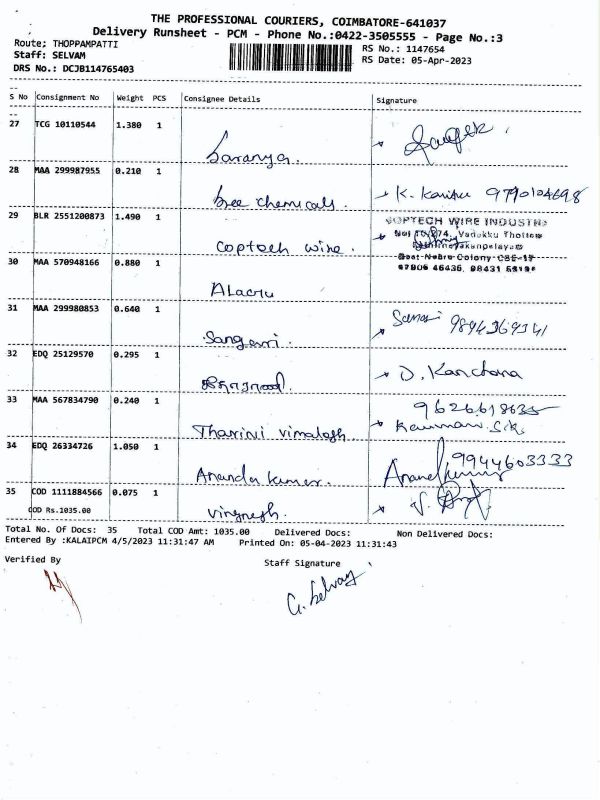 THE PROFESSIONAL COURIERS, COIMBATORE-641037
Delivery Runsheet - PCM - Phone No.:0422-3505555 - Page No.:3
Route; THOPPAMPATTI
RS No.: 1147654
Staff: SELVAM
RS Date: 05-Apr-2023
DRS No.: DCJB114765403
S No Consignment No Weight PCS Consignee Details Signature
27 TCG 10110544 1.380 1
Saranya.
28 MAA 299987955 0.210 1
Sree chemicals. K. Kavitha 9790104698
29 BLR 2551200873 1.490 1
COPTECH WIRE INDUSTRY
Vadakku Thottam
coptech wire.
30 MAA 570948166 0.880 1
31 MAA 299980853 0.640 1
9894369341
Sangavi.
32 EDQ 25129570 0.295 1
D. Kanchana
33 MAA 567834790 0.240 1
Tharini vimalesh
34 EDQ 26334726 1.050 1
9944603333
Ananda kumar. Anand kumar
35 COD 1111884566 0.075 1
COD Rs.1035.00
vingnesh.
Total No. Of Docs: 35 Total COD Amt: 1035.00 Delivered Docs: Non Delivered Docs:
Entered By :KALAIPCM 4/5/2023 11:31:47 AM Printed On: 05-04-2023 11:31:43
Verified By Staff Signature
G. Selvam